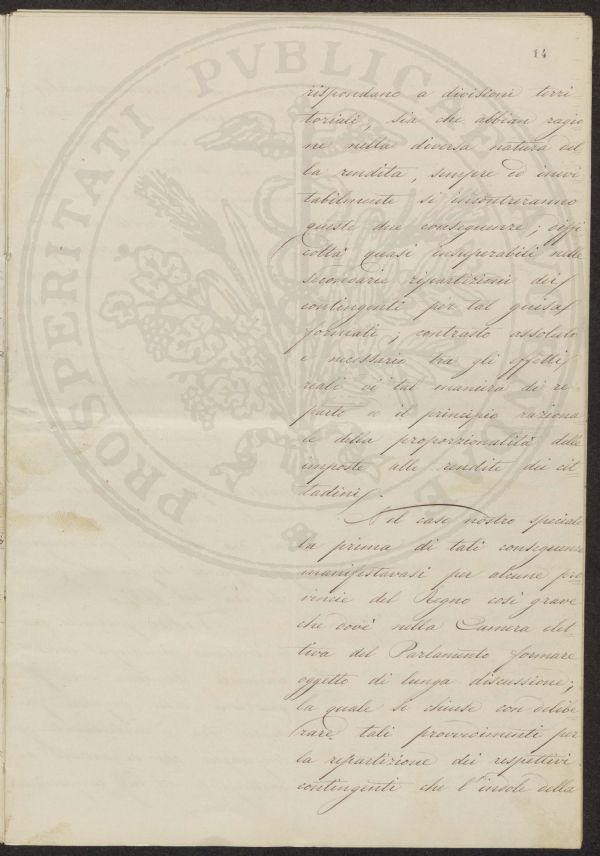 14
rispondano a divisioni terri-
toriali, sia che abbian ragio-
ne nella diversa natura del
la rendita, sempre ed inevi-
tabilmente si incontreranno
queste due conseguenze; diffi
coltà quasi insuperabili nelle
secondarie ripartizioni dei
contingenti per tal guisa
formati; contrasto assoluto
e necessario tra gli effetti
reali di tal maniera di re
parto ed il principio raziona
le della proporzionalità delle
imposte alle rendite dei cit-
tadini.
Nel caso nostro speciale
la prima di tali conseguenze
manifestavasi per alcune pro
vincie del Regno così grave
che dovè nella Camera elet-
tiva del Parlamento formare
oggetto di lunga discussione;
la quale si chiuse con delibe
rare tali provvedimenti per
la repartizione dei respettivi
contingenti che l'indole della
PROSPERITATI PVBLICAE